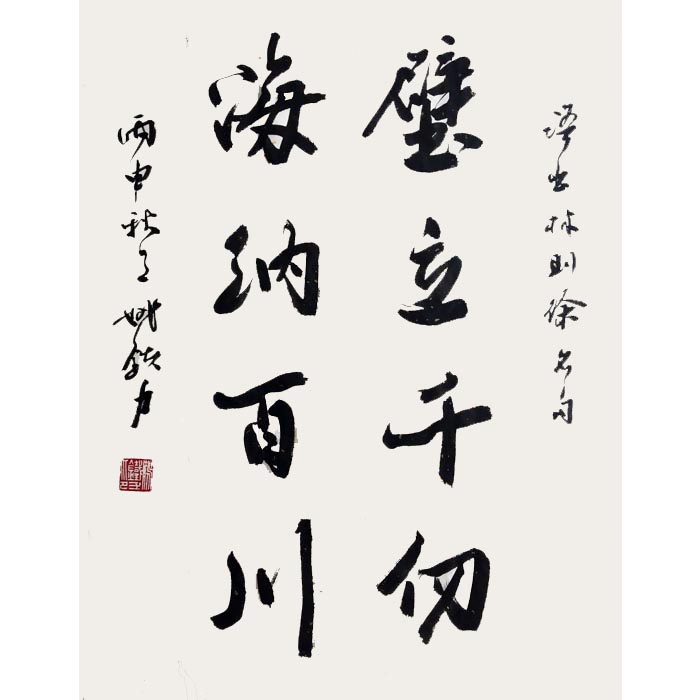 书林则徐名句
壁立千仞
海纳百川
丙申秋 姚铁力